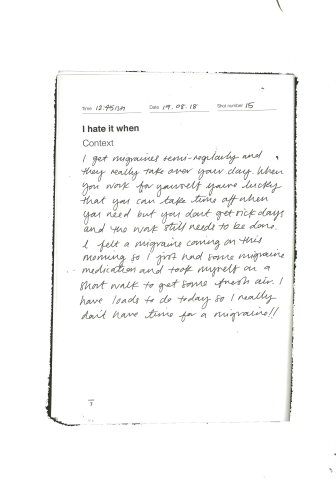 Time 12:45pm Date 19.08.18 Shot number 15
I hate it when
Context
I get migraines semi-regularly and
they really take over your day. When
you work for yourself you're lucky
that you can take time off when
you need but you don't get sick days
and the work still needs to be done.
I felt a migraine coming on this
morning so I just had some migraine
medication and took myself on a
short walk to get some fresh air. I
have loads to do today so I really
don't have time for a migraine!!